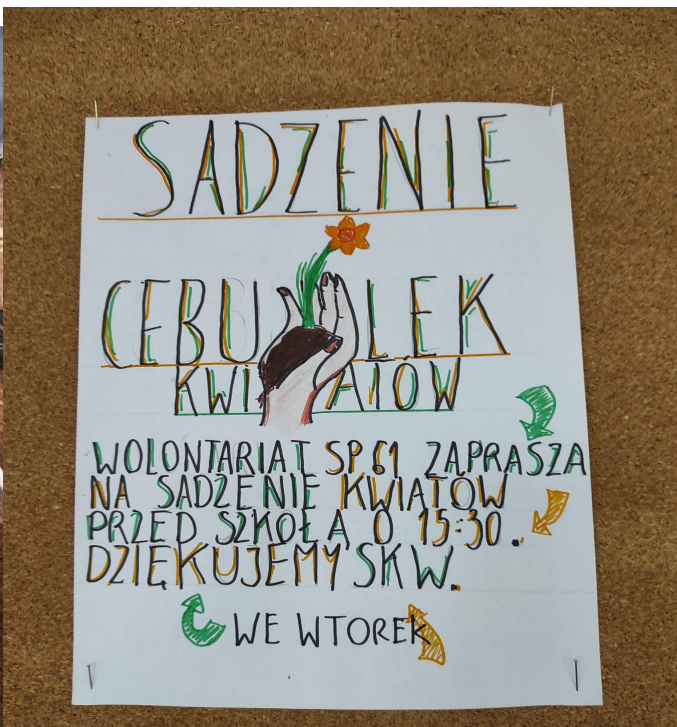 SADZENIE
CEBULEK
KWIATÓW
WOLONTARIAT SP 61 ZAPRASZA
NA SADZENIE KWIATÓW
PRZED SZKOŁĄ O 15:30.
DZIĘKUJEMY SKW.
WE WTOREK